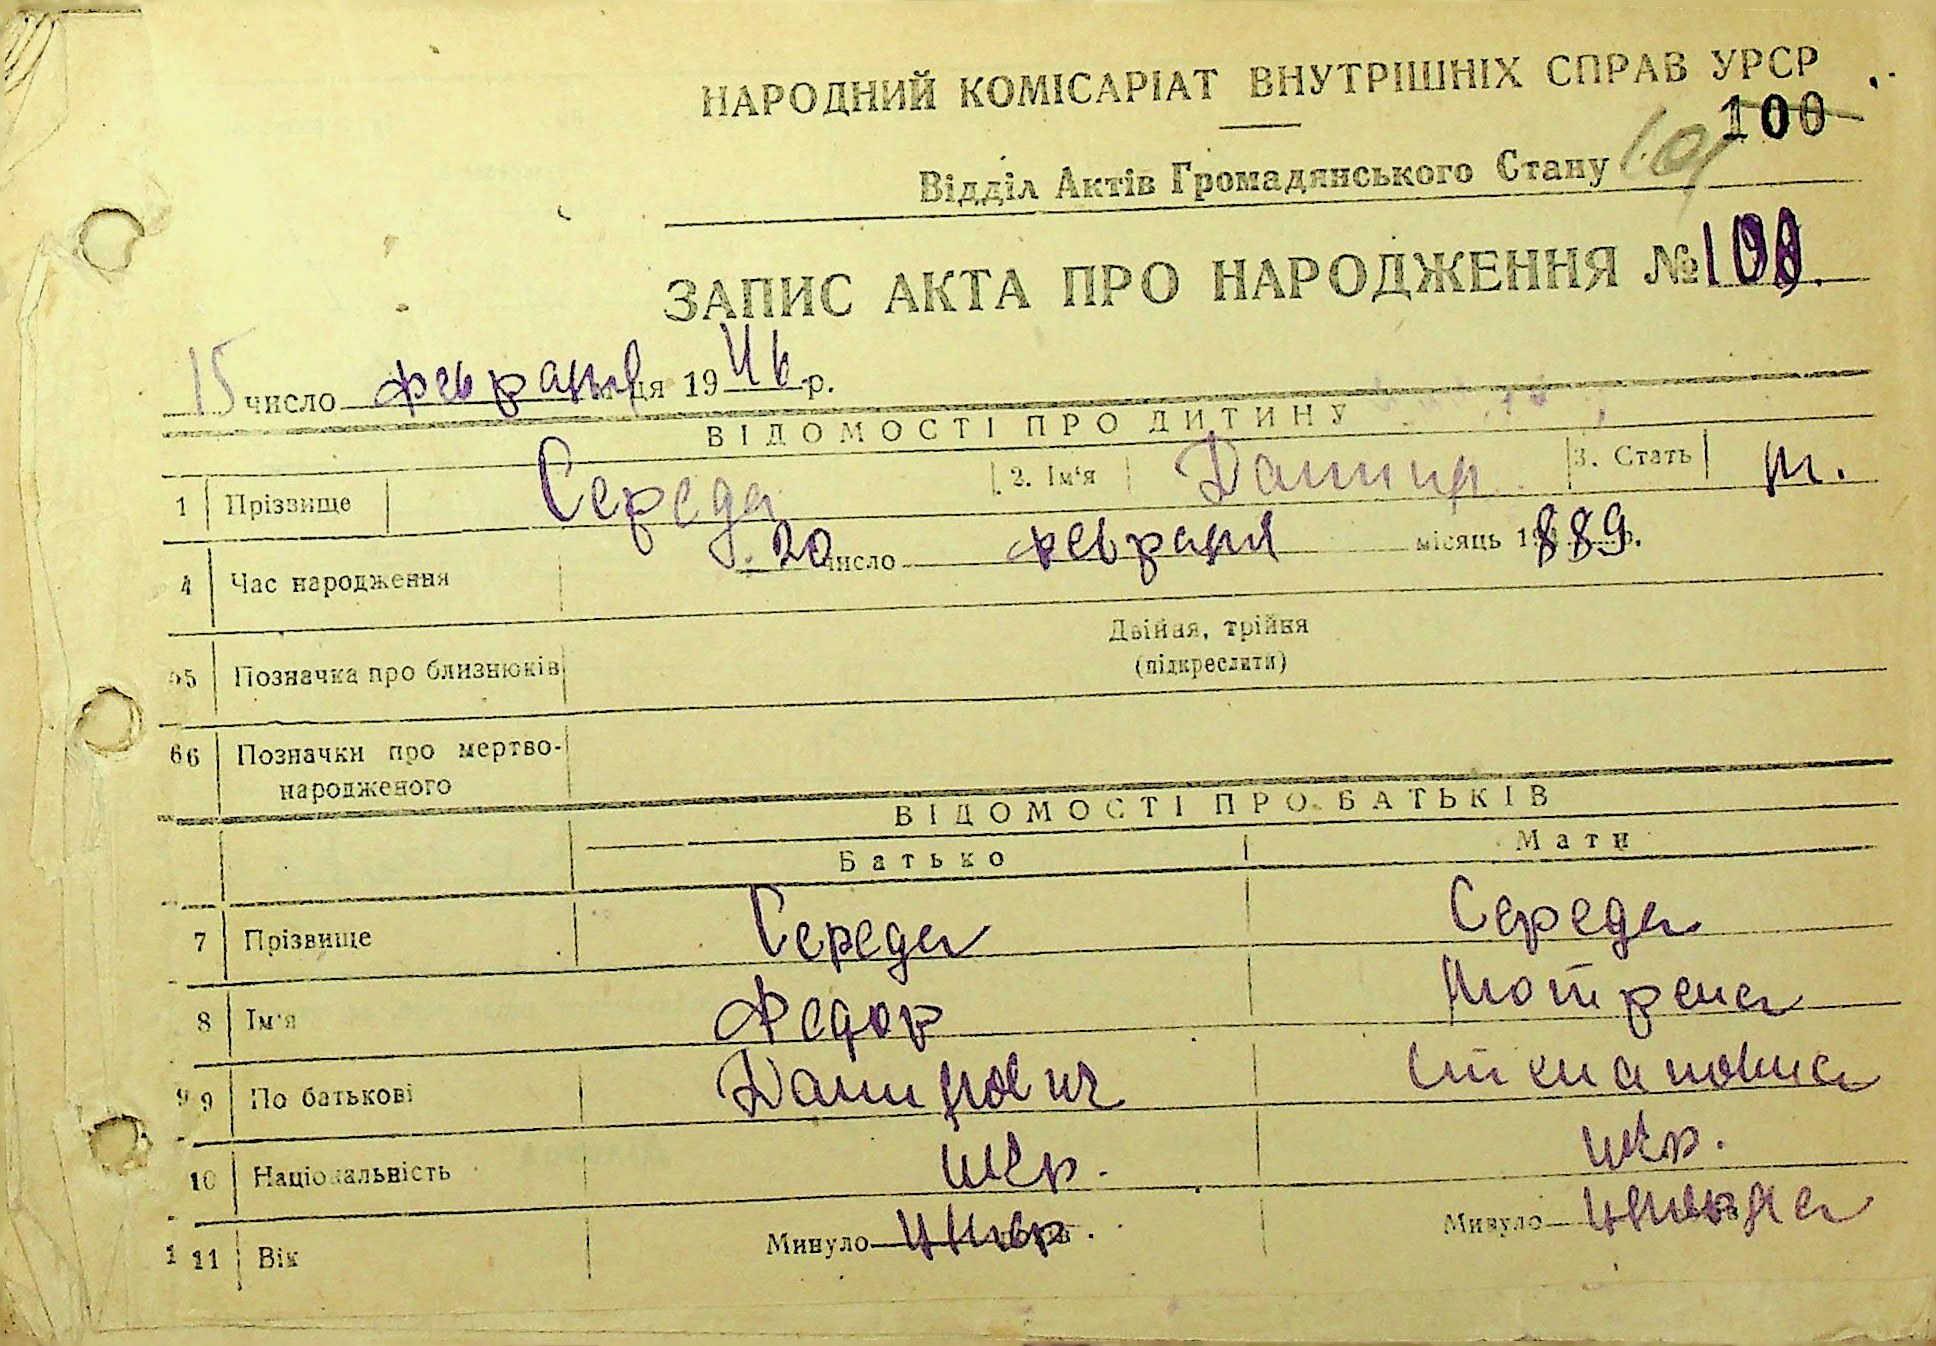 НАРОДНИЙ КОМІСАРІАТ ВНУТРІШНІХ СПРАВ УРСР
100
Відділ Актів Громадянського Стану 101
ЗАПИС АКТА ПРО НАРОДЖЕННЯ № 100.
15 число февраля ця 1946 р.
ВІДОМОСТІ ПРО ДИТИНУ
1 Прізвище Середа 2. Ім'я Данило 3. Стать м.
4 Час народження 20 число февраля місяць 1889 р.
5 Позначка про близнюків Двійня, трійня
(підкреслити)
66 Позначки про мертво-
народженого
ВІДОМОСТІ ПРО БАТЬКІВ
Батько Мати
7 Прізвище Середа Середа
8 Ім'я Федор Мотрена
9 9 По батькові Данилович Степановна
10 Національність укр. укр.
1 11 Вік Минуло умер. Минуло умерла